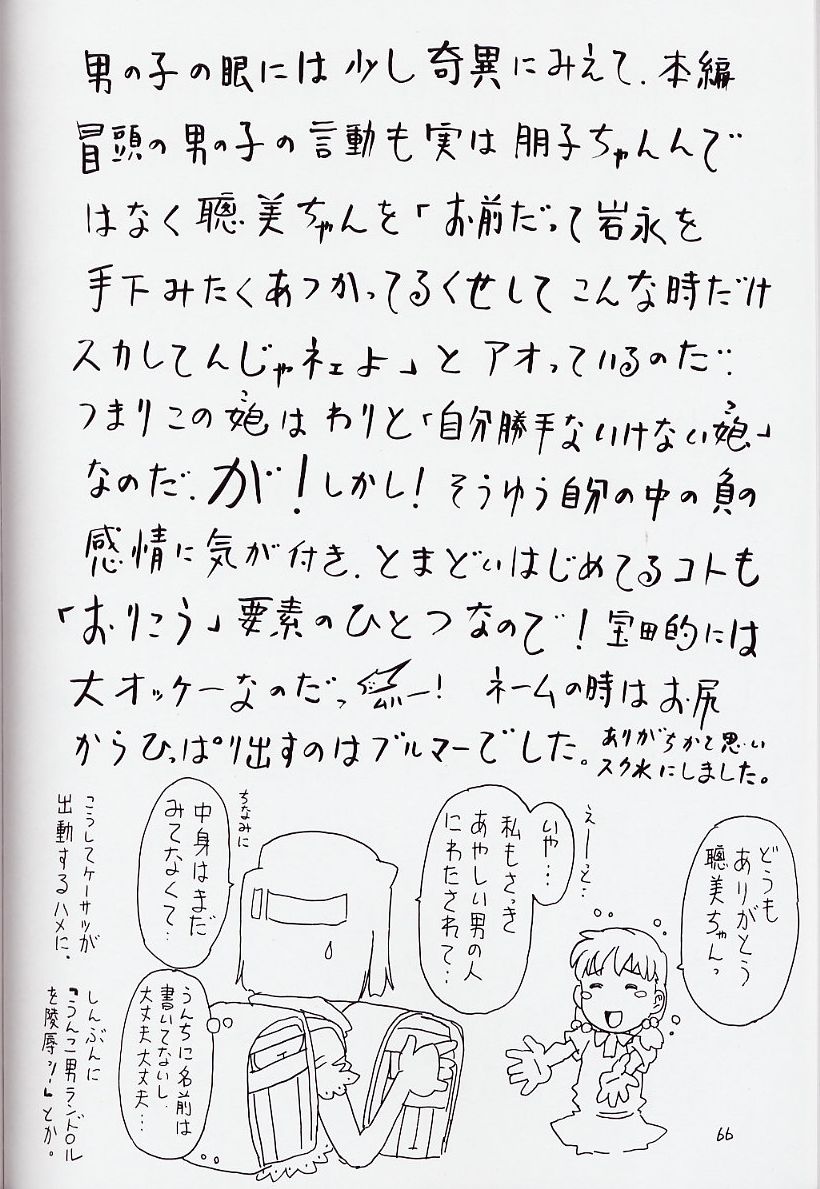 男の子の眼には少し奇異にみえて、本編
冒頭の男の子の言動も実は朋子ちゃんんで
はなく聰美ちゃんを「お前だって岩永を
手下みたくあつかってるくせしてこんな時だけ
スカしてんじゃネェよ」とアオっているのだ!!
つまりこの娘はわりと「自分勝手ないけない娘」
なのだ、が!しかし!そうゆう自分の中の負の
感情に気が付き、とまどいはじめてるコトも
「おりこう」要素のひとつなので!宝田的には
大オッケーなのだっ ー!ネームの時はお尻
からひっぱり出すのはブルマーでした。
ありがちかと思い
スク水にしました。
どうも
ありがとう
聰美ちゃんっ
えーっと…
いや…
私もさっき
あやしい男の人
にわたされて…
ちなみに
中身はまだ
みてなくて…
うんちに名前は
書いてないし、
大丈夫大丈夫…
こうしてケーサツが
出動するハメに。
しんぶんに
「うんこ男ランドル
を陵辱ッ!」とか。
66